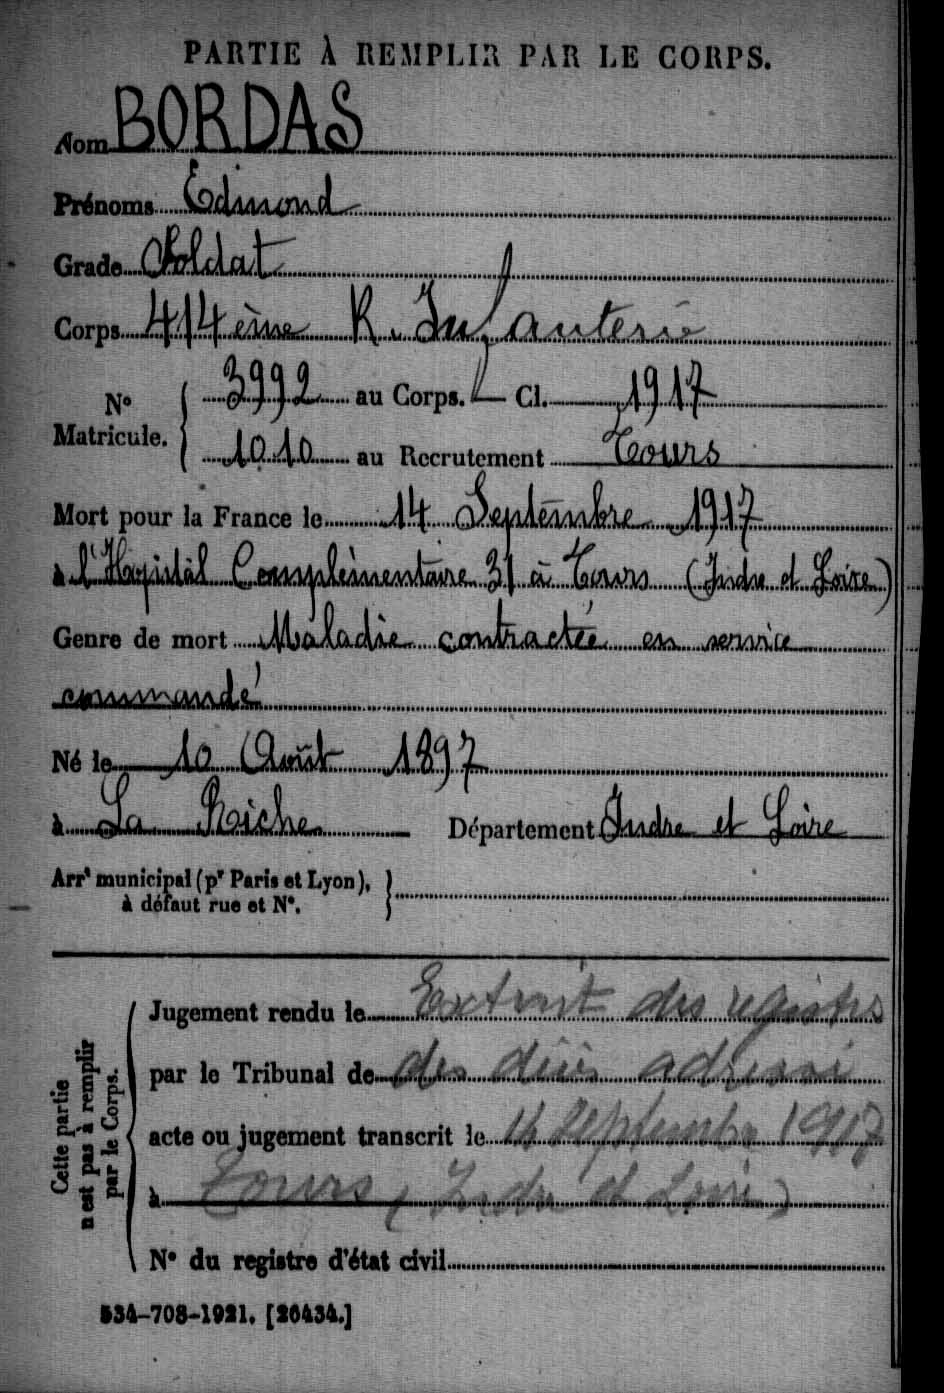 PARTIE À REMPLIR PAR LE CORPS.
Nom BORDAS
Prénoms Edmond
Grade Soldat
Corps 414ème R. Infanterie
N° Matricule. 3992 au Corps. — Cl. 1917
1010 au Recrutement Tours
Mort pour la France le 14 Septembre 1917
à l'Hôpital Complémentaire 31 à Tours (Indre et Loire)
Genre de mort Maladie contractée en service
commandé
Né le 10 Août 1897
à La Riche Département Indre et Loire
Arrt municipal (pr Paris et Lyon),
à défaut rue et N°.
Cette partie
n'est pas à remplir
par le Corps.
Jugement rendu le Extrait des registres
par le Tribunal de des décès adressé
acte ou jugement transcrit le 14 Septembre 1917
à Tours (Indre et Loire)
N° du registre d'état civil
534-708-1921. [26434.]